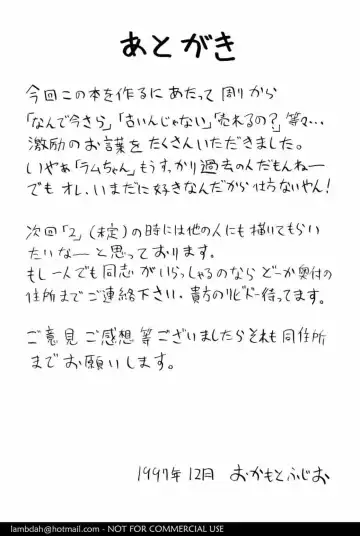 あとがき
今回この本を作るにあたって周りから
「なんで今さら」「古いんじゃない」「売れるの?」等々…
激励のお言葉をたくさんいただきました。
いやぁ「ラムちゃん」もうすっかり過去の人だもんねー
でもオレ、いまだに好きなんだから仕方ないやん!
次回「2」(未定)の時には他の人にも描いてもらい
たいなーと思っております。
もし一人でも同志がいらっしゃるのならどーか奥付の
住所までご連絡下さい。貴方のリビドー待ってます。
ご意見ご感想等ございましたらそれも同住所
までお願いします。
1997年12月 おかもとふじお
lambdah@hotmail.com - NOT FOR COMMERCIAL USE